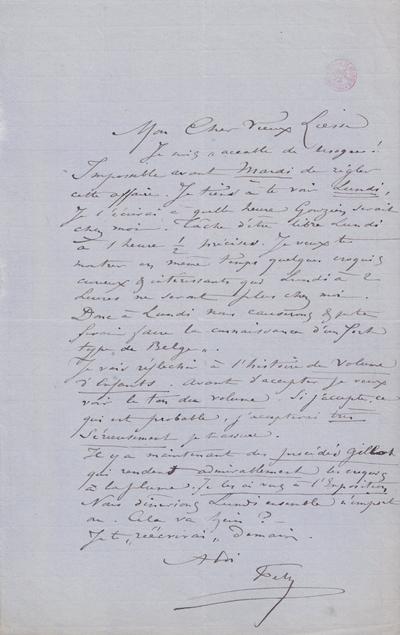 Mon Cher Vieux Liesse
Je suis accablé de besogne!
Impossible avant Mardi de régler
cette affaire. Je tiens à te voir Lundi,
Je t'écrirai à quelle heure Gouzien serait
chez moi. Tâche d'être libre Lundi
à 1 heure ½ précises. Je veux te
montrer en même temps quelques croquis
curieux & intéressants qui Lundi à 2
heures ne seront plus chez moi.
Donc à Lundi nous causerons & je te
ferai faire la connaissance d'un fort
type de Belge.
Je vais réfléchir à l'histoire de volume
d'Enfants. Avant d'accepter je veux
voir le ton du volume. Si j'accepte, ce
qui est probable, j'accepterai très
Sérieusement je t'assure.
Il y a maintenant des procédés Gillot
qui rendent admirablement les croquis
à la plume. Je les ai vus à l'Exposition
Nous dînerons Lundi ensemble n'importe
où. Cela va-t-il?
Je te réécrirai Demain.
A toi
Fély